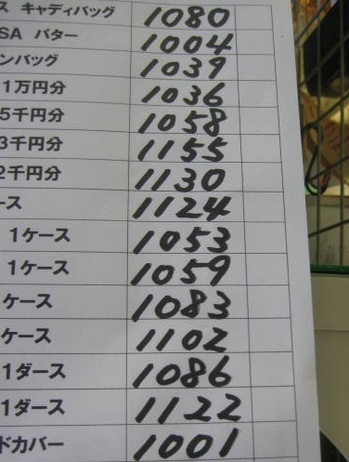 ス キャディバッグ 1080
SA パター 1004
ンバッグ 1039
1万円分 1036
5千円分 1058
3千円分 1155
2千円分 1130
ース 1124
1ケース 1053
1ケース 1059
ケース 1083
ケース 1102
1ダース 1086
1ダース 1122
ドカバー 1001